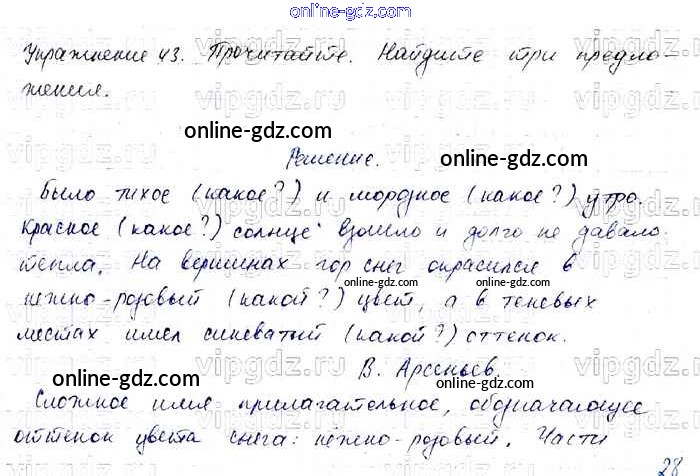 online-gdz.com
Упражнение 43. Прочитайте. Найдите три предло-
жения.
online-gdz.com
online-gdz.com
Решение.
Было тихое (какое?) и морозное (какое?) утро.
Красное (какое?) солнце взошло и долго не давало
тепла. На вершинах гор снег окрасился в
online-gdz.com
нежно-розовый (какой?) цвет, а в теневых
местах имел синеватый (какой?) оттенок.
В. Арсеньев.
online-gdz.com
online-gdz.com
Сложное имя прилагательное, обозначающее
оттенок цвета снега: нежно-розовый. Части
28